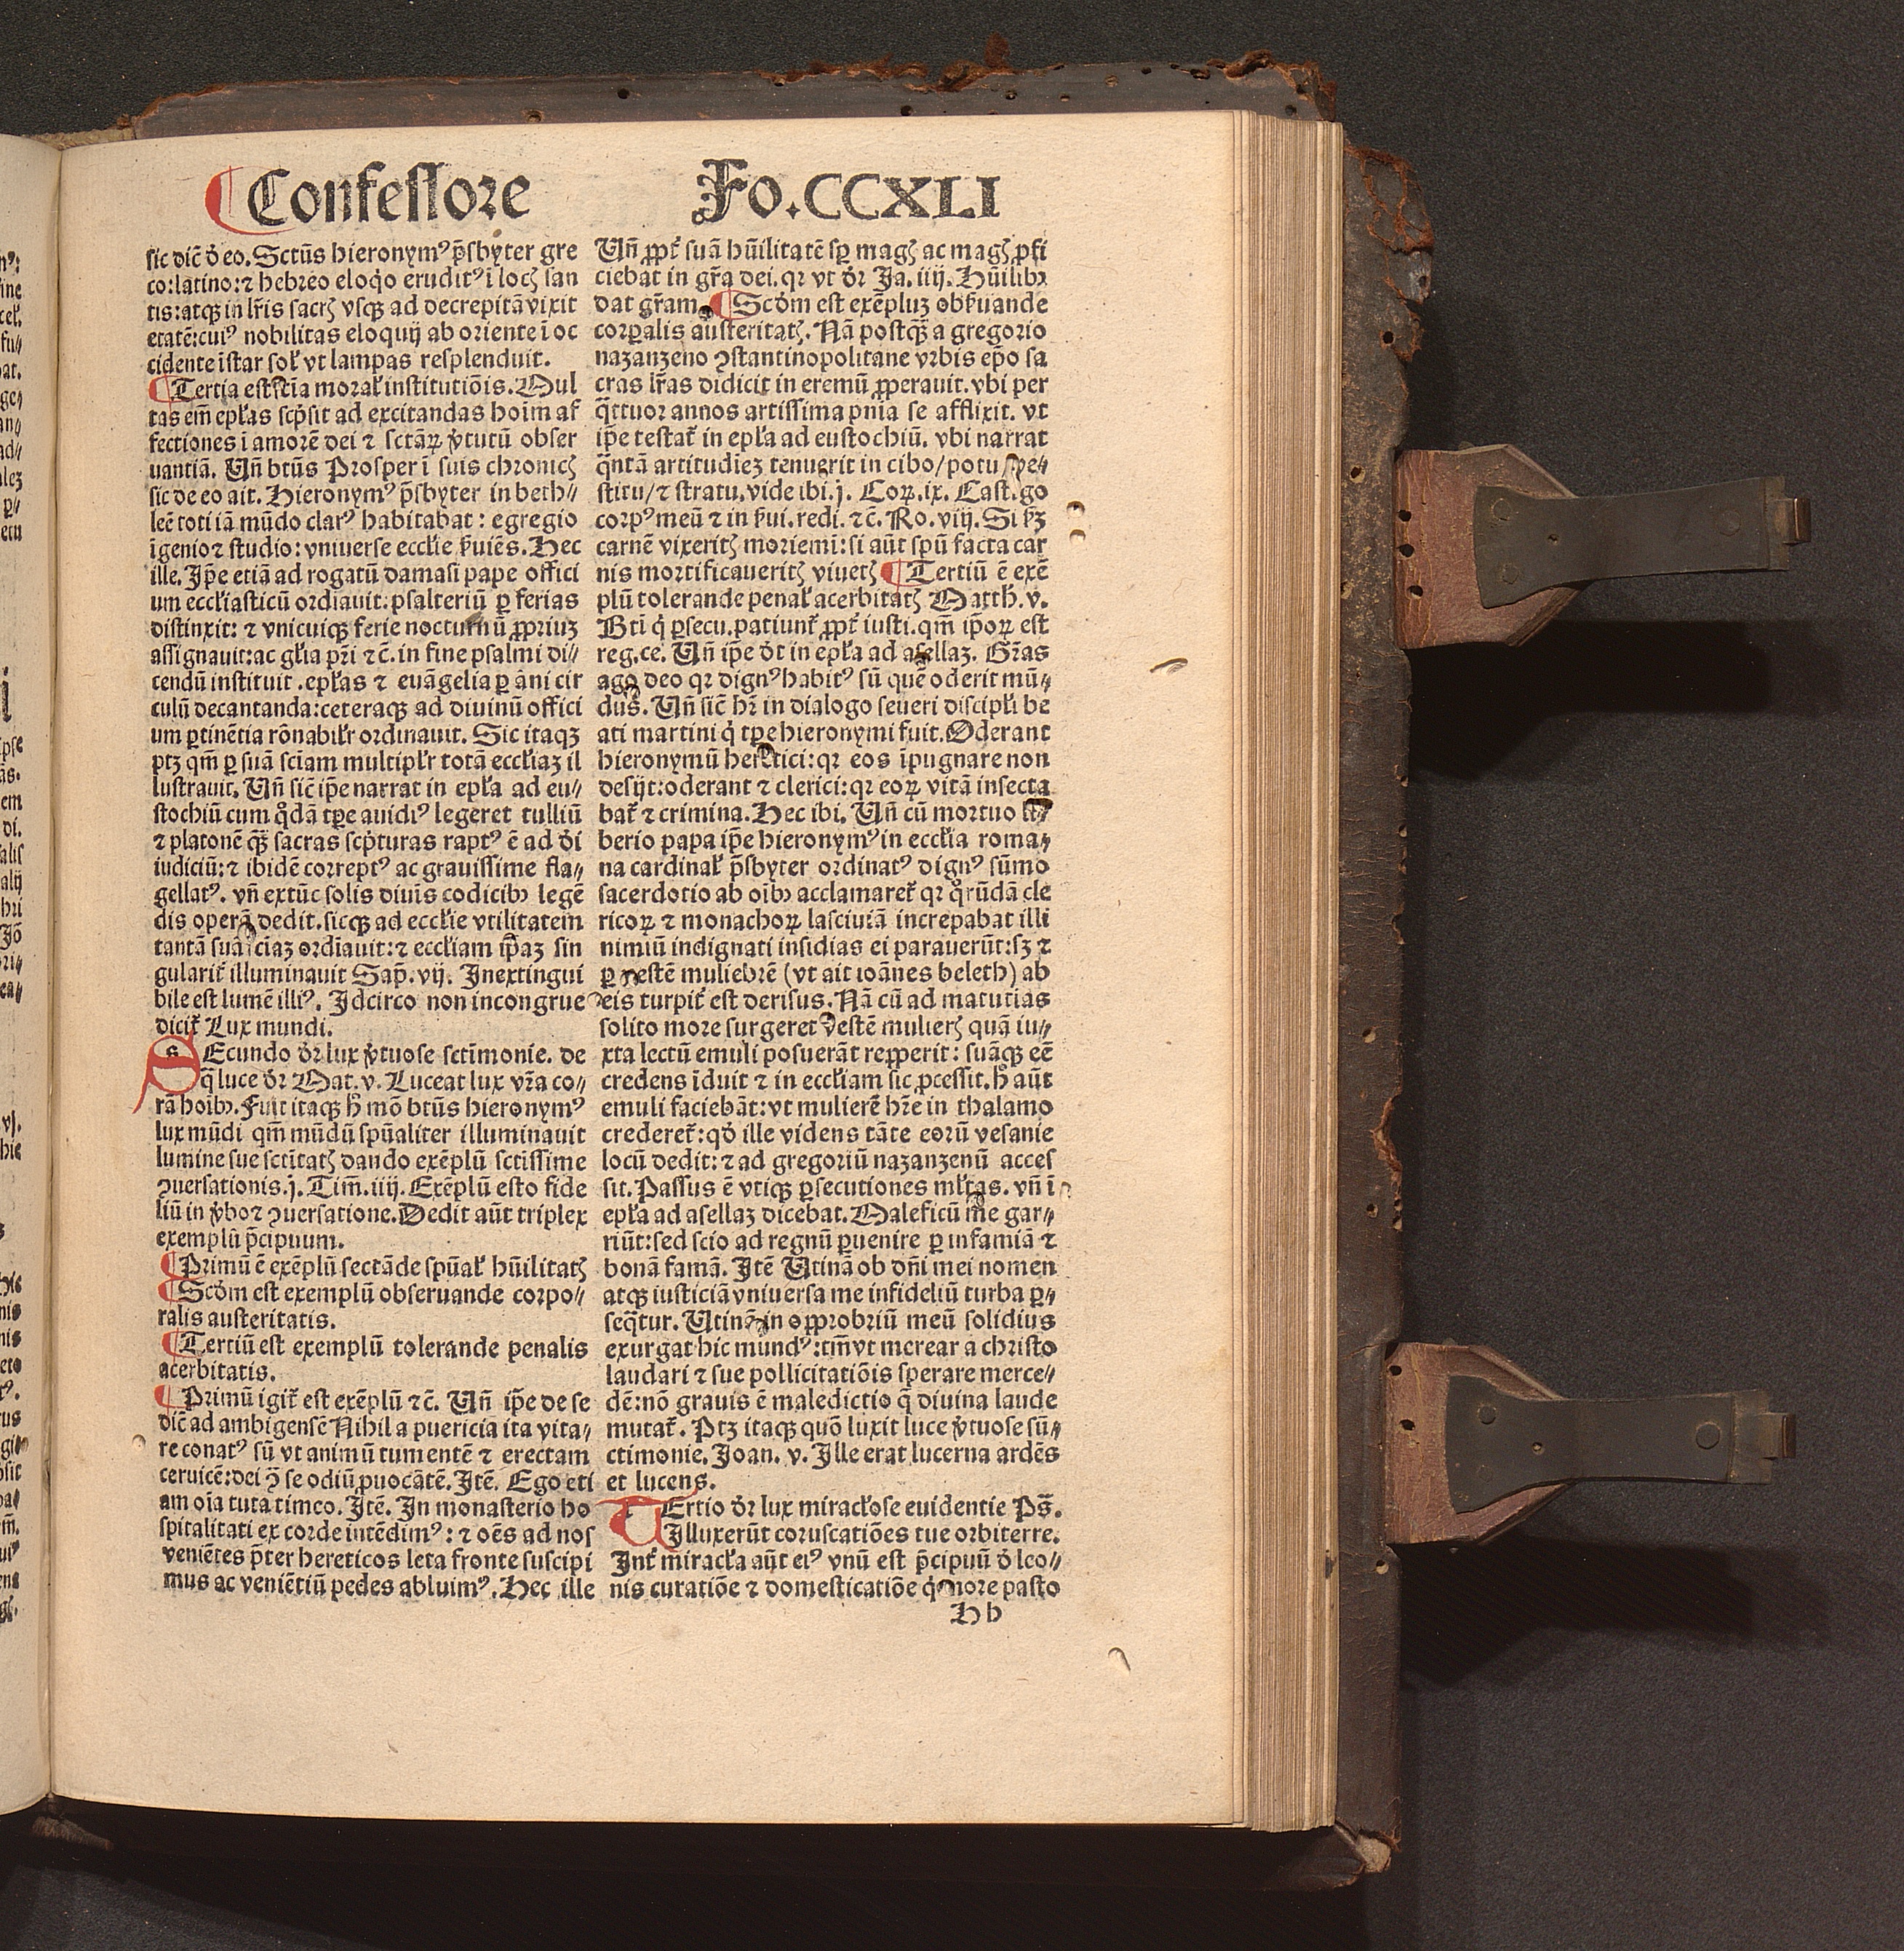 ¶Confessore Fo.CCXLI
sic dic̄ ď eo. Sctūs hieronym⁹ p̄sbyter gre
co:latino:⁊ hebreo eloq̇o erudit⁹ ī locꝭ san
tis:atqꝫ in lr̄is sacrꝭ vsqꝫ ad decrepitā vixit
etatē:cui⁹ nobilitas eloquij ab oriente ī oc
cidente īstar sol̄ vt lampas resplenduit.
¶Tertia est sciā moral̄ institutiōis. Mul
tas em̄ epl̄as scp̄sit ad excitandas hoīm af
fectiones ī amorē dei ⁊ sctāꝝ v̇tutū obser
uantiā. Un̄ btūs Prosper ī suis chronicꝭ
sic de eo ait. Hieronym⁹ p̄sbyter in beth//
leē toti iā mūdo clar⁹ habitabat: egregio
īgenio ⁊ studio: vniuerse eccl̄ie ẜuiēs. Hec
ille. Ip̄e etiā ad rogatū damasi pape offici
um eccl̄iasticū ordīauit: psalteriū ꝑ ferias
distinxit: ⁊ vnicuiqꝫ ferie nocturnū ꝓpriuꝫ
assignauit:ac gl̄ia pr̄i ⁊c̄. in fine psalmi di//
cendū instituit. epl̄as ⁊ euāgelia ꝑ āni cir
culū decantanda:ceteraqꝫ ad diuinū offici
um ꝑtinētia rōnabil̄r ordinauit. Sic itaqꝫ
ptꝫ qm̄ ꝑ suā sciam multipl̄r totā eccl̄iaꝫ il
lustrauit. Un̄ sic̄ ip̄e narrat in epl̄a ad eu//
stochiū cum qͦdā tp̄e auidi⁹ legeret tulliū
⁊ platonē qꝫ̄ sacras scp̄turas rapt⁹ ē ad ďi
iudiciū:⁊ ibidē corrept⁹ ac grauissime fla//
gellat⁹. vn̄ extūc solis diuīs codicibꝫ legē
dis operā dedit. sicqꝫ ad eccl̄ie vtilitatem
tantā suā sciaꝫ ordīauit:⁊ eccl̄iam ip̄aꝫ sin
gularit̄ illuminauit Sap̄. vij. Inextingui
bile est lumē illi⁹. Idcirco non incongrue
dicit̄ Lux mundi.
SEcundo ďr lux v̇tuose sctīmonie. de
q̄ luce ďr Mat. v. Luceat lux vr̄a co//
rā hoībꝫ. Fuit itaqꝫ h̄ mō btūs hieronym⁹
lux mūdi qm̄ mūdū spūaliter illuminauit
lumine sue sctītatꝭ dando exēplū sctissime
ꝯuersationis. j. Tim̄. iiij. Exēplū esto fide
liū in v̇bo ⁊ ꝯuersatione. Dedit aūt triplex
exemplū p̄cipuum.
¶Primū ē exēplū sectāde spūal̄ hūilitatꝭ
¶Scďm est exemplū obseruande corpo//
ralis austeritatis.
¶Tertiū est exemplū tolerande penalis
acerbitatis.
¶Primū igit̄ est exēplū ⁊c̄. Un̄ ip̄e de se
dic̄ ad ambigensē Nihil a puericia ita vita//
re conat⁹ sū vt animū tumentē ⁊ erectam
ceruicē:dei ꝯ se odiū ꝓuocātē. Itē. Ego eti
am oīa tuta timeo. Itē. In monasterio ho
spitalitati ex corde intēdim⁹: ⁊ oēs ad nos
veniētes p̄ter hereticos leta fronte suscipi
mus ac veniētiū pedes abluim⁹. Hec ille
Un̄ ꝓpt̄ suā hūilitatē sꝑ magꝭ ac magꝭ ꝓfi
ciebat in gr̄a dei. qꝛ vt ďr Ja. iiij. Hūilibꝫ
dat gr̄am. ¶Scďm est exēpluꝫ obẜuande
corꝑalis austeritatꝭ. Nā postqꝫ̄ a gregorio
nazanzeno ꝯstantinopolitane vrbis ep̄o sa
cras lr̄as didicit in eremū ꝓperauit. vbi per
q̄ttuor annos artissima pn̄ia se afflixit. vt
ip̄e testat̄ in epl̄a ad eustochiū. vbi narrat
q̄ntā artitudieꝫ tenuerit in cibo/potu/ve//
stitu/⁊ stratu. vide ibi. j. Coꝝ. ix. Castigo
corp⁹ meū ⁊ in ẜui. redi. ⁊c̄. Ro. viij. Si ẜꝫ
carnē vixeritꝭ moriemī: si aūt spū facta car
nis mortificaueritꝭ viuetꝭ ¶Tertiū ē exē
plū tolerande penal̄ acerbitatꝭ Matth̄. v.
Bti q̇ ꝑsecu. patiunt̄ ꝓpt̄ iusti. qm̄ ip̄oꝝ est
reg. ce. Un̄ ip̄e ďt in epl̄a ad asellaꝫ. Gr̄as
ago deo qꝛ dign⁹ habit⁹ sū quē oderit mū//
dus. Un̄ sic̄ hr̄ in dialogo seueri discipl̄i be
ati martini q̇ tp̄e hieronymi fuit. Oderant
hieronymū heretici: qꝛ eos īpugnare non
desijt:oderant ⁊ clerici: qꝛ eoꝝ vitā insecta
bat̄ ⁊ crimina. Hec ibi. Un̄ cū mortuo li//
berio papa ip̄e hieronym⁹ in eccl̄ia roma//
na cardinal̄ p̄sbyter ordinat⁹ dign⁹ sūmo
sacerdotio ab oībꝫ acclamaret̄ qꝛ qͦrūdā cle
ricoꝝ ⁊ monachoꝝ lasciuiā increpabat illi
nimiū indignati insidias ei parauerūt:sꝫ ⁊
ꝑ vestē muliebrē (vt ait ioānes beleth) ab
eis turpit̄ est derisus. Nā cū ad matutias
solito more surgeret vestē mulierꝭ quā iu//
xta lectū emuli posuerāt reꝑperit: suāqꝫ eē
credens īduit ⁊ in eccl̄iam sic ꝓcessit. h̄ aūt
emuli faciebāt: vt mulierē hr̄e in thalamo
crederet̄: qď ille videns tāte eorū vesanie
locū dedit: ⁊ ad gregoriū nazanzenū acces
sit. Passus ē vtiqꝫ ꝑsecutiones ml̄tas. vn̄ ī
epl̄a ad asellaꝫ dicebat. Maleficū me gar//
riūt:sed scio ad regnū ꝑuenire ꝑ infamiā ⁊
bonā famā. Itē Utinā ob dn̄i mei nomen
atqꝫ iusticiā vniuersa me infideliū turba ꝑ//
seq̄tur. Utinā in opprobriū meū solidius
exurgat hic mund⁹: tm̄ vt merear a christo
laudari ⁊ sue pollicitatiōis sperare merce//
dē: nō grauis ē maledictio q̄ diuina laude
mutat̄. Ptꝫ itaqꝫ quō luxit luce v̇tuose sū//
ctimonie. Joan. v. Ille erat lucerna ardēs
et lucens.
TErtio ďr lux miracl̄ose euidentie Ps̄.
Illuxerūt coruscatiōes tue orbiterre.
Int̄ miracl̄a aūt ei⁹ vnū est p̄cipuū ď leo//
nis curatiōe ⁊ domesticatiōe q̇ more pasto
Hb